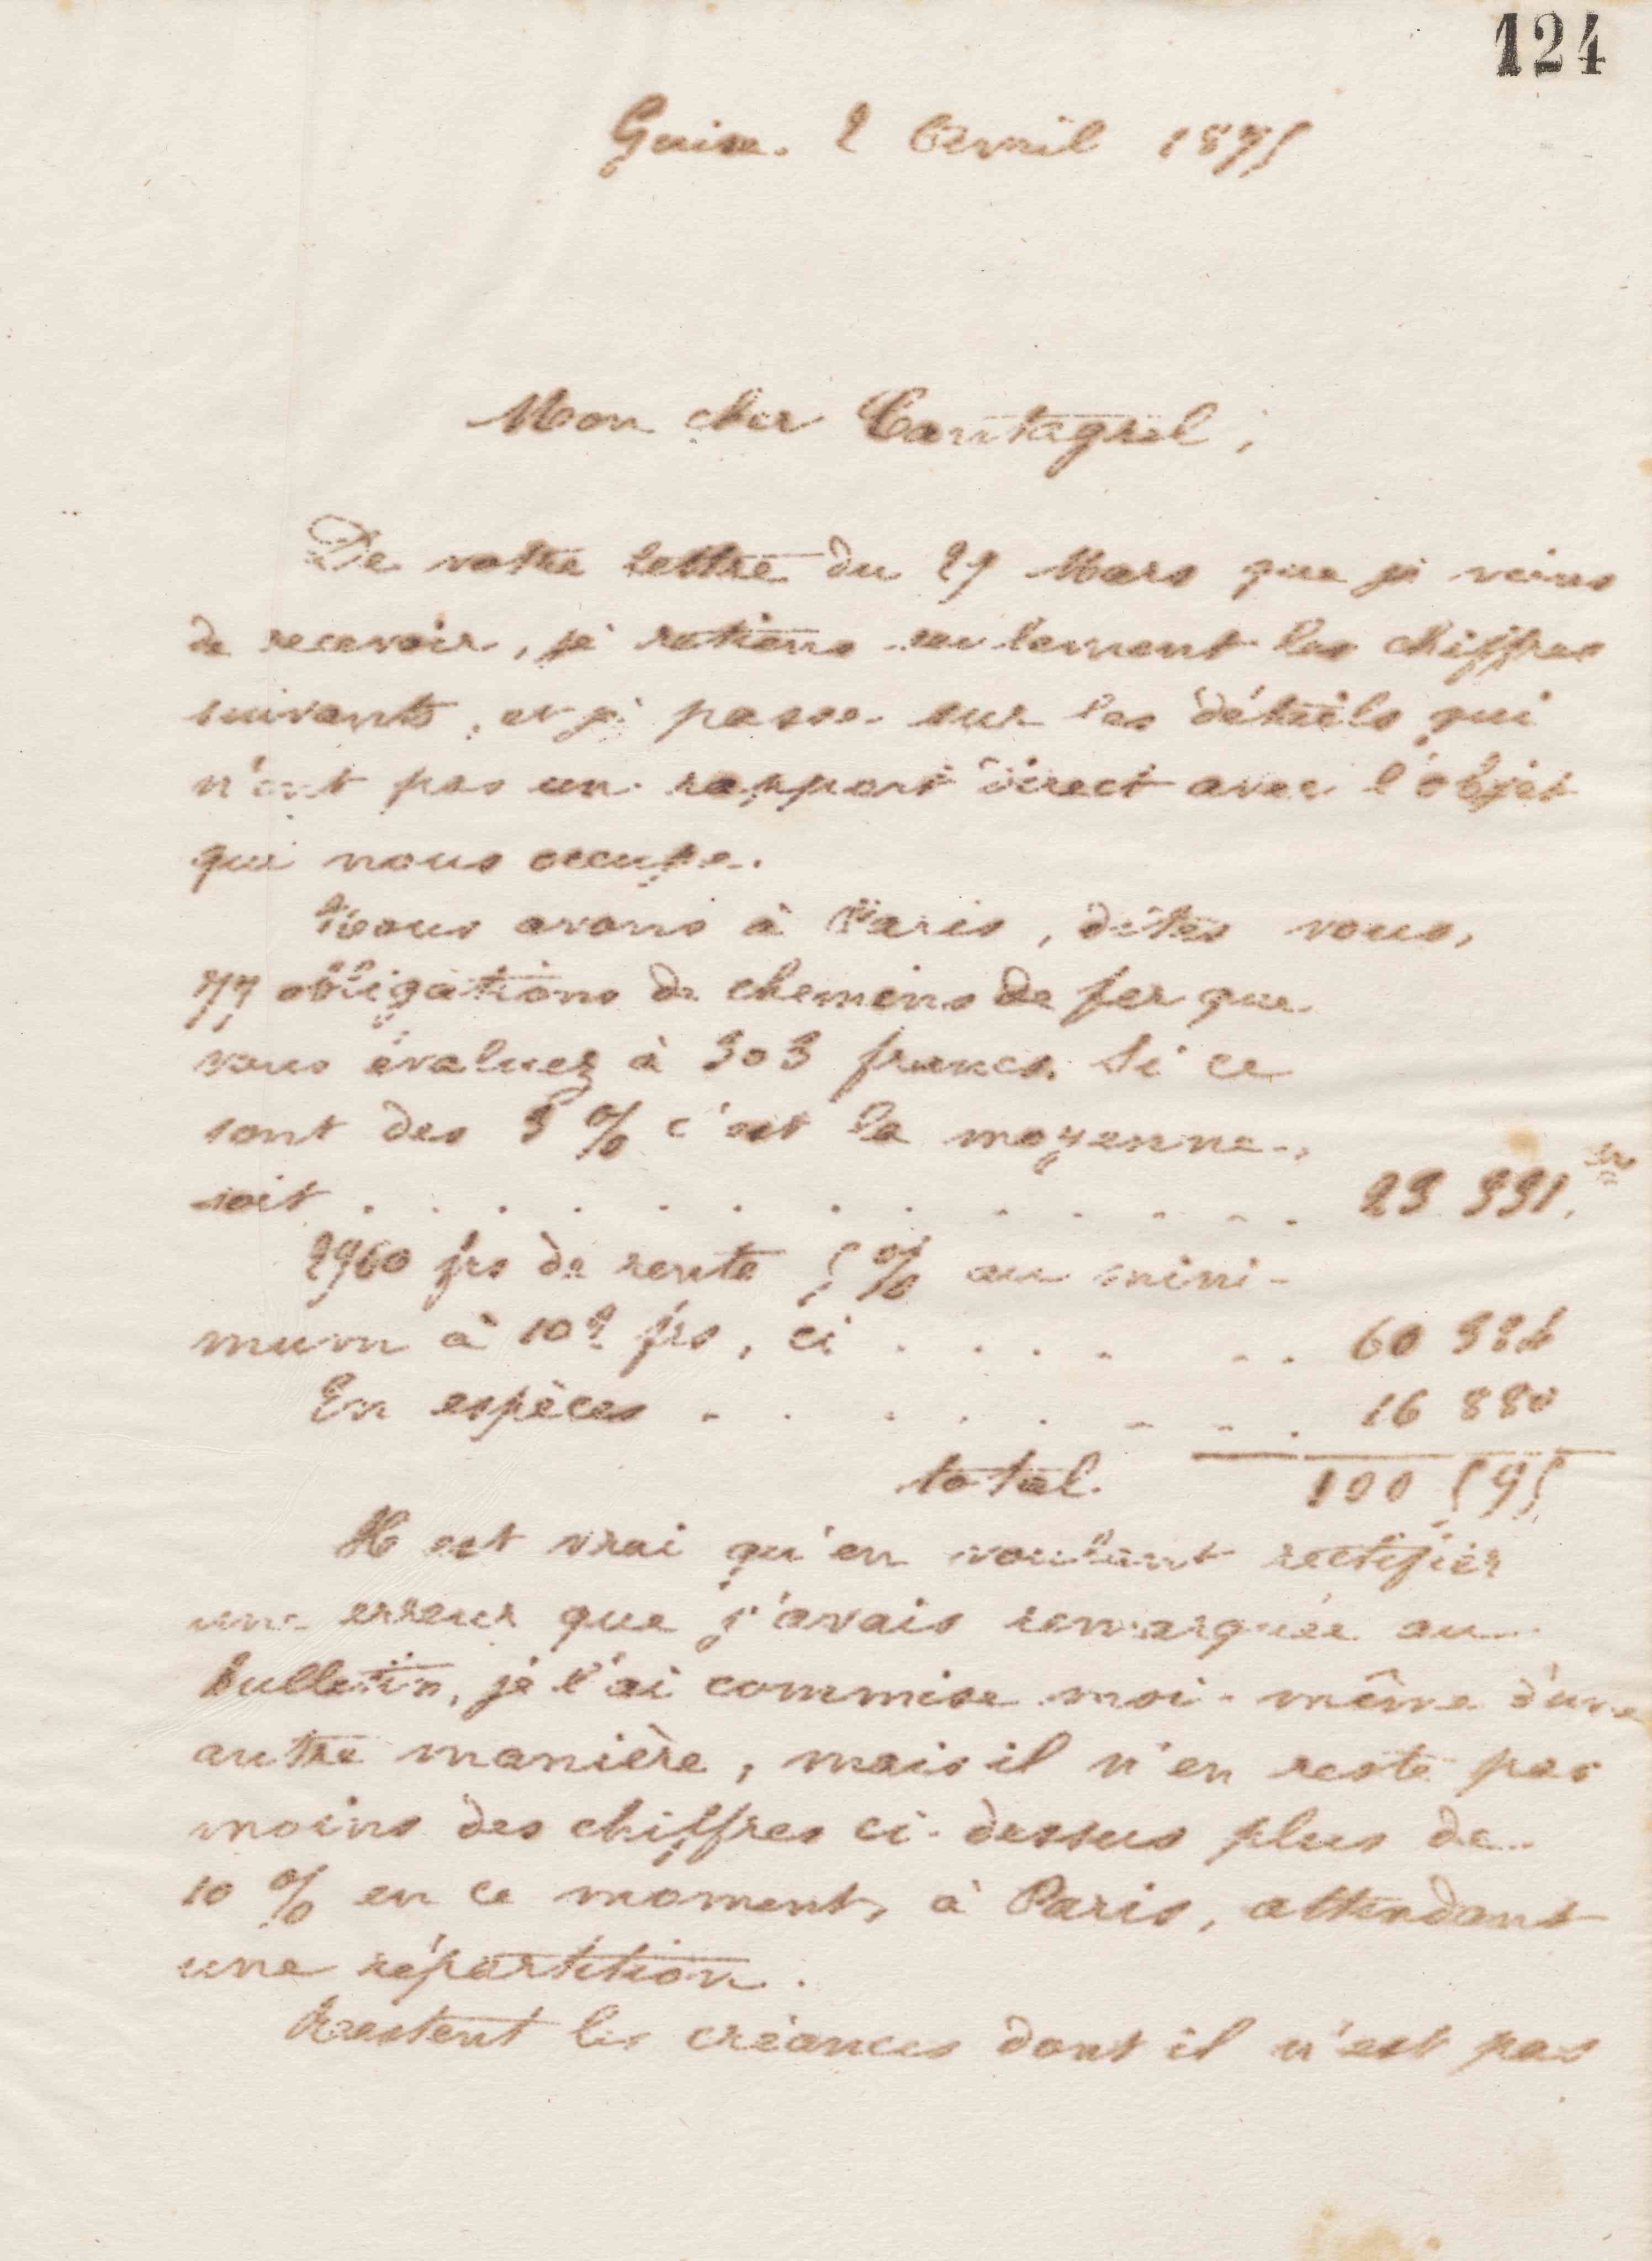 124
Guise. 2 Avril 1875
Mon cher Cantagrel,
De votre lettre du 29 Mars que je viens
de recevoir, je retiens seulement les chiffres
suivants, et je passe sur les détails qui
n'ont pas un rapport direct avec l'objet
qui nous occupe.
Nous avons à Paris, dites vous,
77 obligations de chemins de fer que
vous évaluez à 303 francs. Si ce
sont des 3 % c'est la moyenne,
soit . . . . . . . . . . . . . 23 331, frs
2960 frs de rente 5 % au mini-
mum à 102 frs, ci . . . . . . 60 384
En espèces . . . . . . . . 16 880
total. 100 595
Il est vrai qu'en voulant rectifier
une erreur que j'avais remarquée au
bulletin, je l'ai commise moi-même d'une
autre manière, mais il n'en reste pas
moins des chiffres ci-dessus plus de
10 % en ce moment, à Paris, attendant
une répartition.
Restent les créances dont il n'est pas